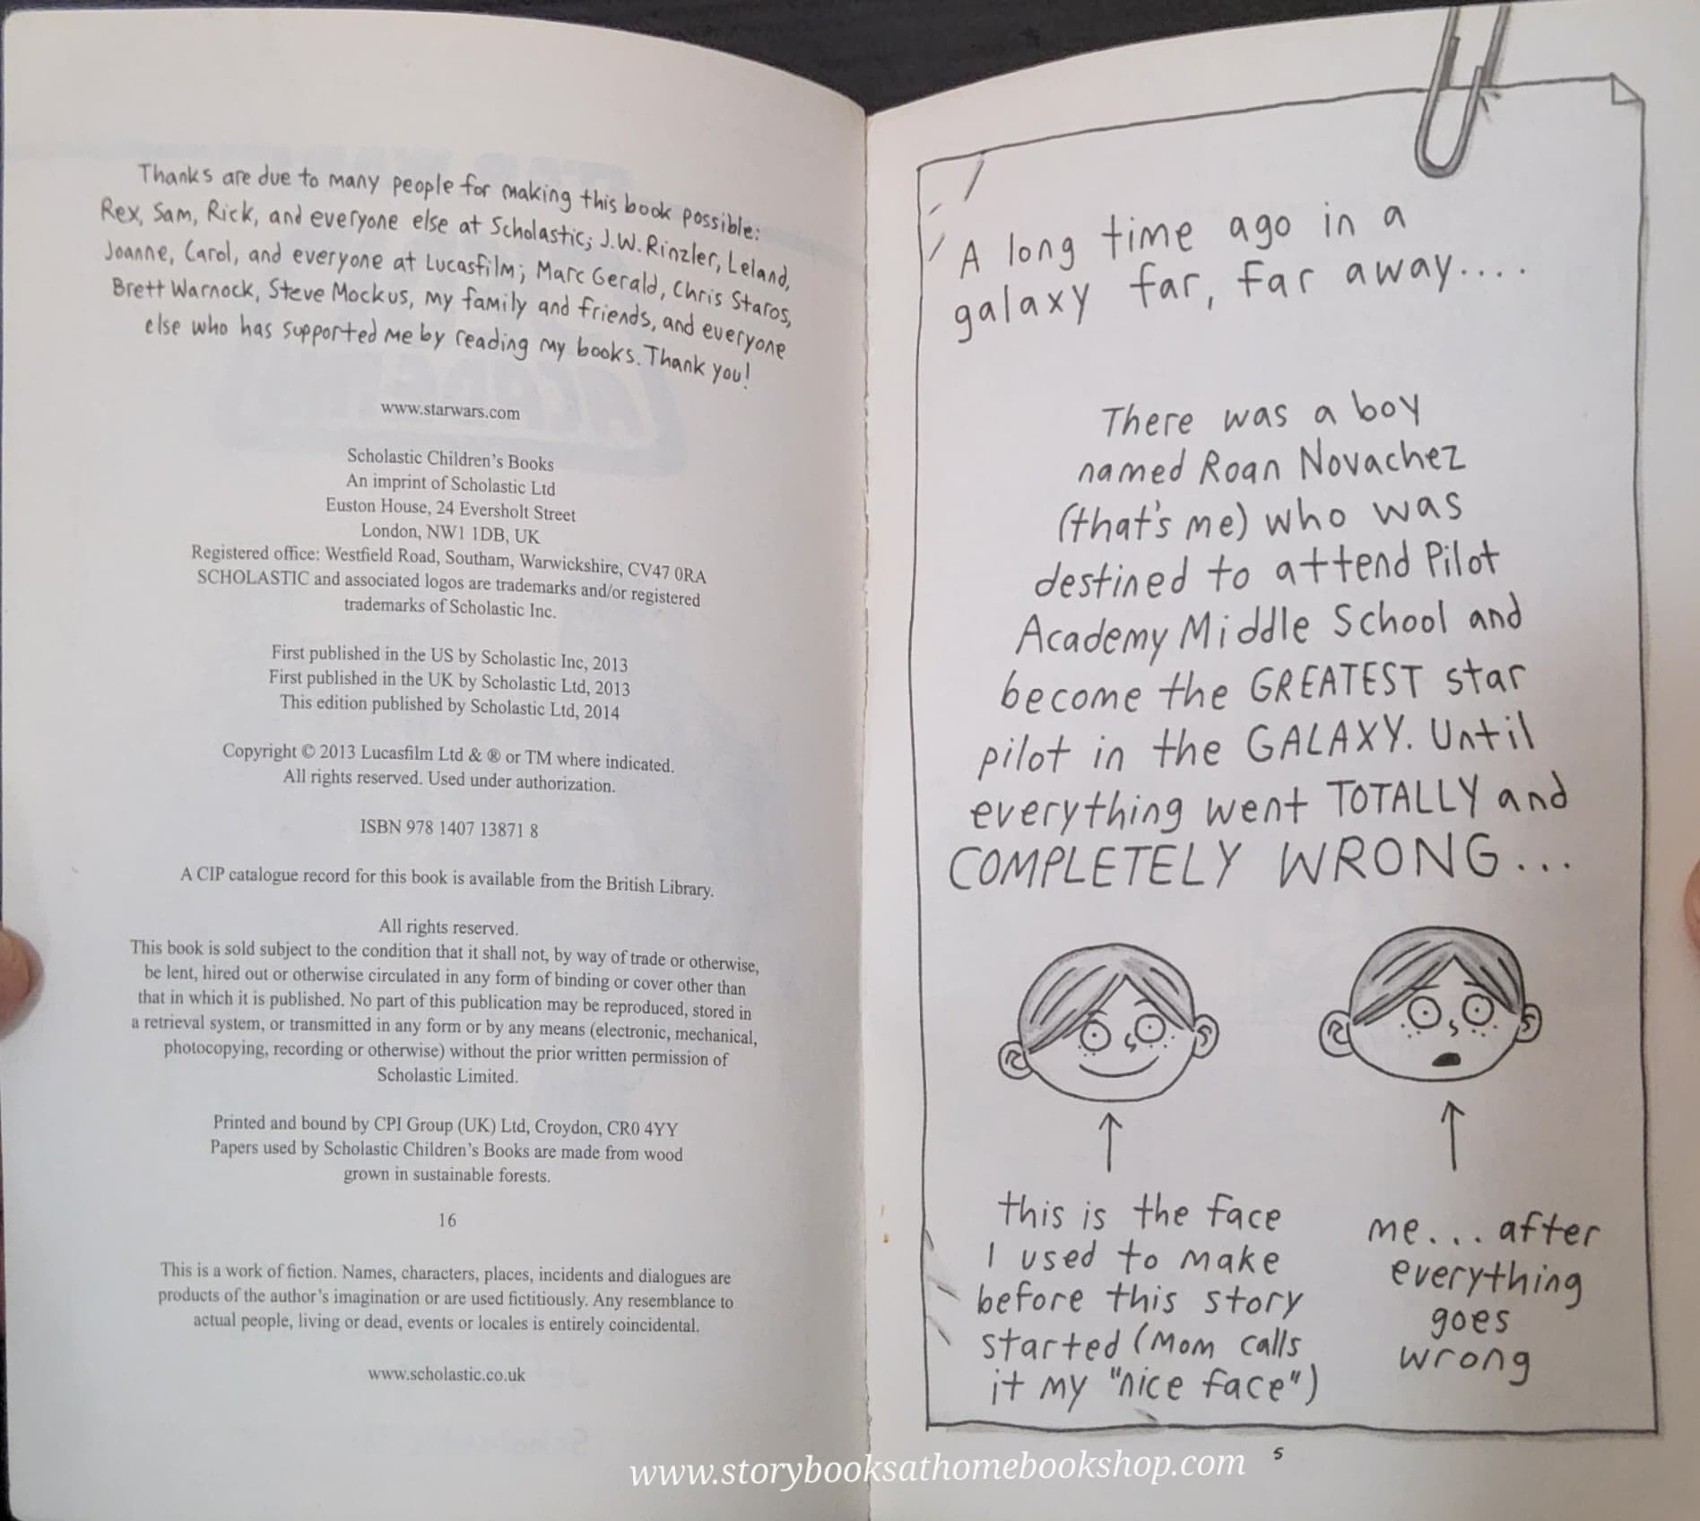 Thanks are due to many people for making this book possible:
Rex, Sam, Rick, and everyone else at Scholastic; J.W. Rinzler, Leland,
Joanne, Carol, and everyone at Lucasfilm; Marc Gerald, Chris Staros,
Brett Warnock, Steve Mockus, my family and friends, and everyone
else who has supported me by reading my books. Thank you!
www.starwars.com
Scholastic Children's Books
An imprint of Scholastic Ltd
Euston House, 24 Eversholt Street
London, NW1 1DB, UK
Registered office: Westfield Road, Southam, Warwickshire, CV47 0RA
SCHOLASTIC and associated logos are trademarks and/or registered
trademarks of Scholastic Inc.
First published in the US by Scholastic Inc, 2013
First published in the UK by Scholastic Ltd, 2013
This edition published by Scholastic Ltd, 2014
Copyright © 2013 Lucasfilm Ltd & ® or TM where indicated.
All rights reserved. Used under authorization.
ISBN 978 1407 13871 8
A CIP catalogue record for this book is available from the British Library.
All rights reserved.
This book is sold subject to the condition that it shall not, by way of trade or otherwise,
be lent, hired out or otherwise circulated in any form of binding or cover other than
that in which it is published. No part of this publication may be reproduced, stored in
a retrieval system, or transmitted in any form or by any means (electronic, mechanical,
photocopying, recording or otherwise) without the prior written permission of
Scholastic Limited.
Printed and bound by CPI Group (UK) Ltd, Croydon, CR0 4YY
Papers used by Scholastic Children's Books are made from wood
grown in sustainable forests.
16
This is a work of fiction. Names, characters, places, incidents and dialogues are
products of the author's imagination or are used fictitiously. Any resemblance to
actual people, living or dead, events or locales is entirely coincidental.
www.scholastic.co.uk
A long time ago in a
galaxy far, far away....
There was a boy
named Roan Novachez
(that's me) who was
destined to attend Pilot
Academy Middle School and
become the GREATEST star
pilot in the GALAXY. Until
everything went TOTALLY and
COMPLETELY WRONG...
this is the face
I used to make
before this story
started (Mom calls
it my "nice face")
me... after
everything
goes
wrong
5
www.storybooksathomebookshop.com